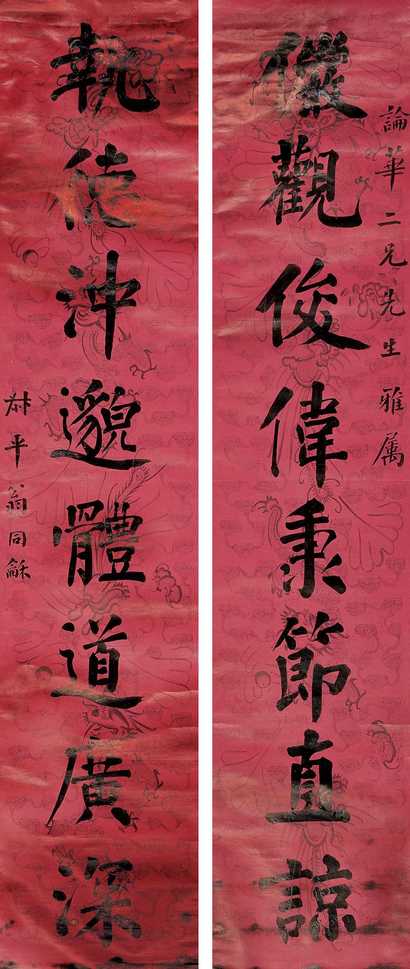 論華二兄先生雅属
儀觀俊偉秉節直諒
執德沖邈體道廣深
叔平翁同龢